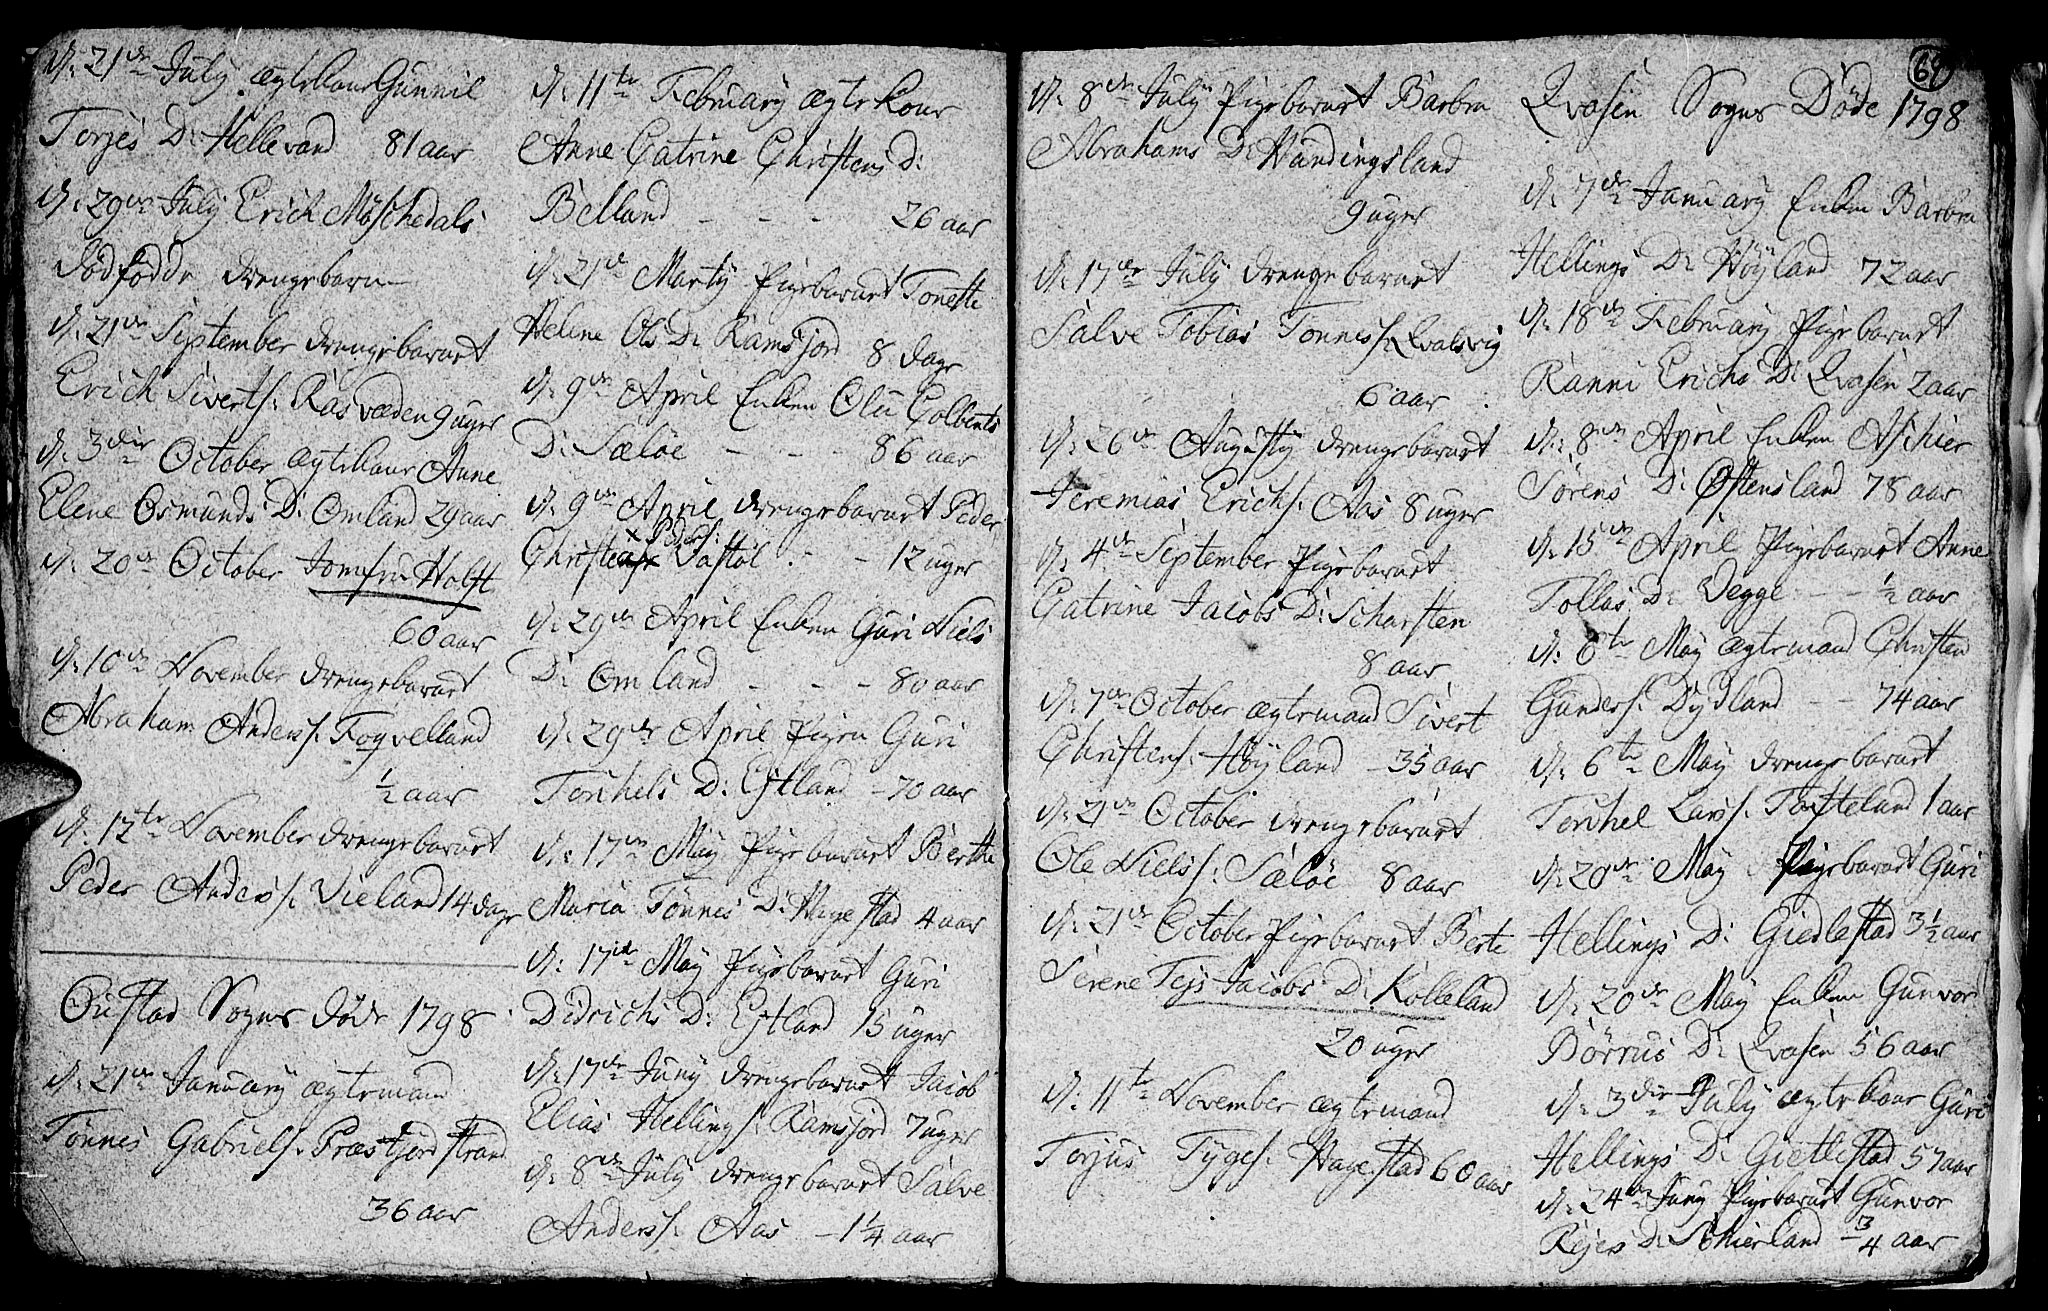 D: 21de July ægtekone Gunnil
Torjes D: Hellevand 81 aar
D: 29de July Erich Møschedals
dødfødde drengebarn
D: 21de September drengebarnet
Erich Siverts: Rasvæden 9 uger
D: 3die October ægtekone Anne
Elene Osmunds D: Omland 29 aar
D: 20de October Jomfru Holft
60 aar
D: 10de November drengebarnet
Abraham Anders: Fogvelland
½ aar
D: 12te November drengebarnet
Peder Anders: Vieland 14 dage
Oustad Sogns døde 1798
D: 21de January ægtemand
Tønnes Gabriels: Præstfjordstrand
36 aar
D: 11te February ægtekone
Anne Catrine Christens D:
Belland - - - 26 aar
D: 21de Marty Pigebarnet Tonette
Helene Ols D: Ramsfjord 8 dage
D: 9de April Enken Olu Colbents
D: Sæløe - - - 86 aar
D: 9de April drengebarnet Peder
Peders:
Christian Saastøl : - 12 uger
D: 29de April Enken Guri Niels
D: Omland - - - 80 aar
D: 29de April Pigen Guri
Torchels D: Eftland - 70 aar
D: 17de May Pigebarnet Berthe
Maria Tønnes D: Hagestad 4 aar
D: 17de May Pigebarnet Guri
Didrichs D: Eftland 15 uger
D: 17de Juny drengebarnet Jacob
Elias Hellings: Ramsfjord 7 uger
D: 8de July drengebarnet Salve
Anders: Aas - 1¼ aar
69
D: 8de July Pigebarnet Barbra
Abrahams D: Handingsland
9 uger
D: 17de July drengebarnet
Salve Tobias Tønnes: Qvalsvig
6 aar
D: 26de Augusty drengebarnet
Jeremias Erichs: Aas 8 uger
D: 4de September Pigebarnet
Catrine Jacobs D: Scharsten
8 aar
D: 7de October ægtemand Sivert
Christens: Høyland - 35 aar
D: 21de October drengebarnet
Ole Niels: Sæløe 8 aar
D: 21de October Pigebarnet Berte
Serene Tejs Jacobs D: Kolleland
20 uger
D: 11te November ægtemand
Torjus Tyges: Hagestad 60 aar
Qvasen Sogns Døde 1798
D: 7de January Enken Barbra
Hellings D: Høyland 72 aar
D: 18de February Pigebarnet
Ranni Erichs D: Qvasen 2 aar
D: 8de April Enken Aschier
Sørens D: Østensland 78 aar
D: 15de April Pigebarnet Anne
Tollas D: Vegge - - ½ aar
D: 6te May ægtemand Christen
Gunders: Dydland - - 74 aar
D: 6te May drengebarnet
Torchel Lars: Torfteland 1 aar
D: 20de May Pigebarnet Guri
Hellings D: Giedlestad 3½ aar
D: 20de May Enken Gunvor
Børrus D: Qvasen 56 aar
D: 3die July ægtekone Guri
Hellings D: Gietlestad 57 aar
D: 24de Juny Pigebarnet Gunvor
Rejers D: Schierland ¾ aar